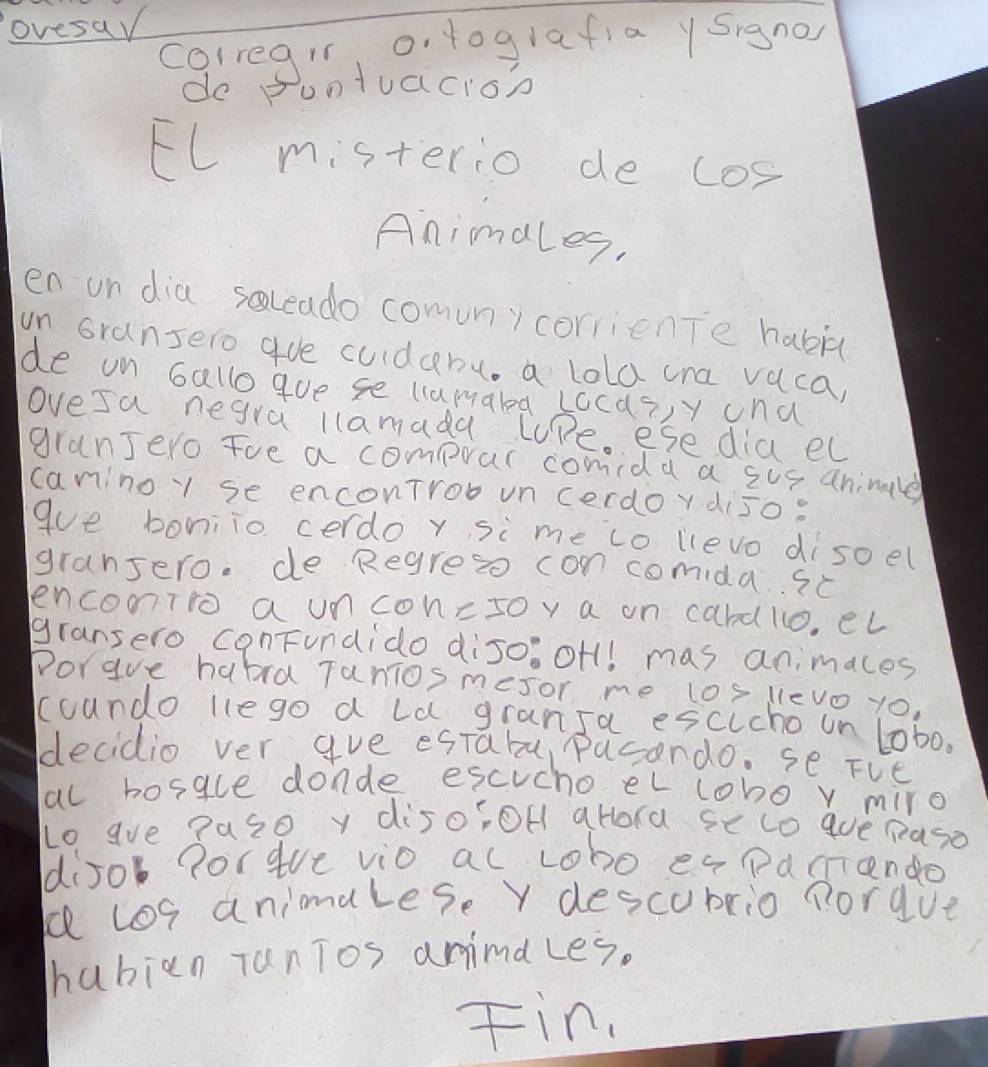 ovesa
corregir ortografia y Signos
de Puntuación
El misterio de los
Animales.
en un dia soleado comun y corriente habia
un Granjero que cuidaba. a lola una vaca,
de un Gallo que se llamaba Lucas, y una
oveJa negra llamada LuPe. ese dia el
granJero Fue a comprar comida a sus animales
camino y se enconTroo un cerdo y diJo:
que boniTo cerdo y si me lo llevo diso el
granJero. de Regreso con comida se
enconTro a un coneJo y a un caballo. el
gransero conFundido diJo: OH! mas animales
Porque habra TanTos meJor me los llevo yo.
cuando llego a La granJa escucho un Lobo.
decidio ver que esTaba Pasando. se Fue
al bosque donde escucho el lobo y miro
Lo que Paso y diJo: OH aHora se lo que Paso
diJo: Porque vio al Lobo es PanTando
a los animales. y descubrio Porque
habian TanTos animales.
Fin.